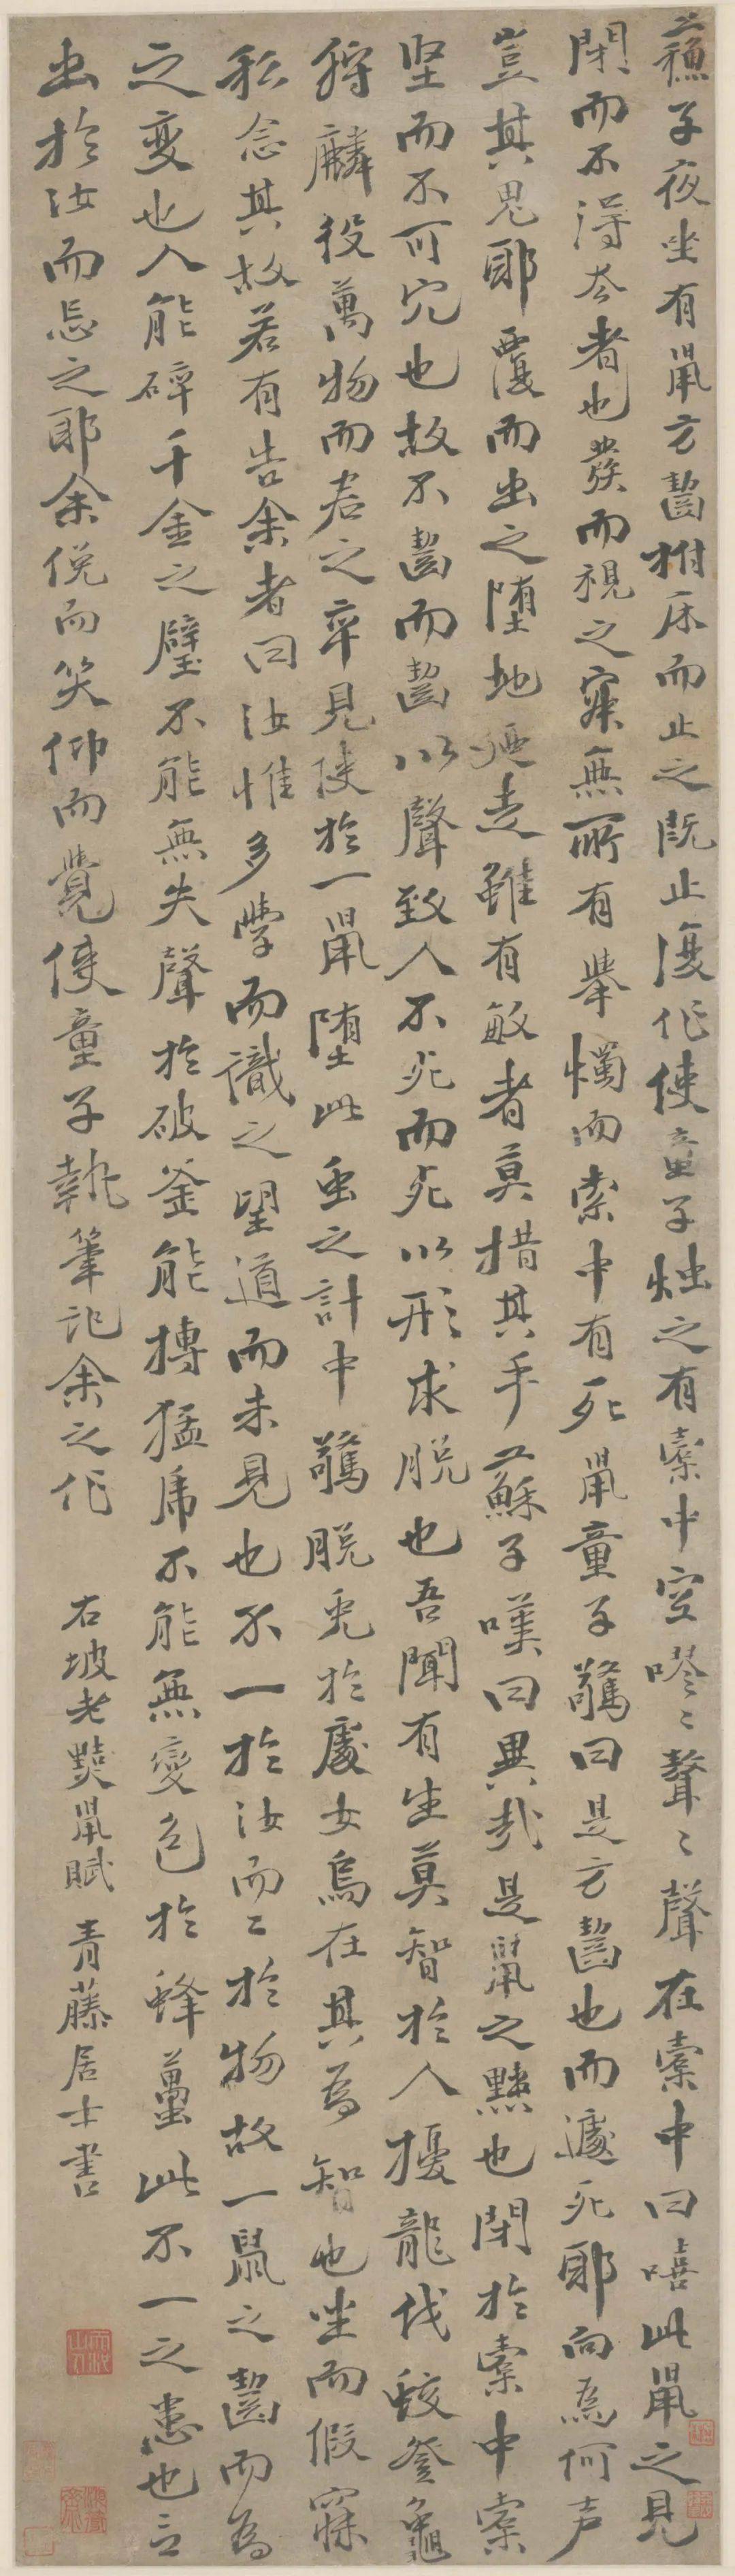 蘇子夜坐有鼠方齧拊床而止之既止復作使童子燭之有橐中空嘐〻聱〻聲在橐中曰嘻此鼠之見
閉而不得去者也發而視之寂無所有舉燭而索中有死鼠童子驚曰是方齧也而遽死耶向為何声
豈其鬼耶覆而出之墮地廼走雖有敏者莫措其手蘇子嘆曰異哉是鼠之黠也閉於橐中橐
坚而不可穴也故不齧而齧以聲致人不死而死以形求脱也吾聞有生莫智於人擾龍伐蛟登龜
狩麟役萬物而君之卒見使於一鼠墮此虫之計中驚脱兎於處女烏在其為智也坐而假寐
私念其故若有告余者曰汝惟多學而識之望道而未見也不一於汝而二於物故一鼠之齧而為
之變也人能碎千金之璧不能無失聲於破釜能搏猛虎不能無變色於蜂蠆此不一之患也言
出於汝而忘之耶余俛而笑仰而覺使童子執筆記余之作
右坡老黠鼠賦 青藤居士書